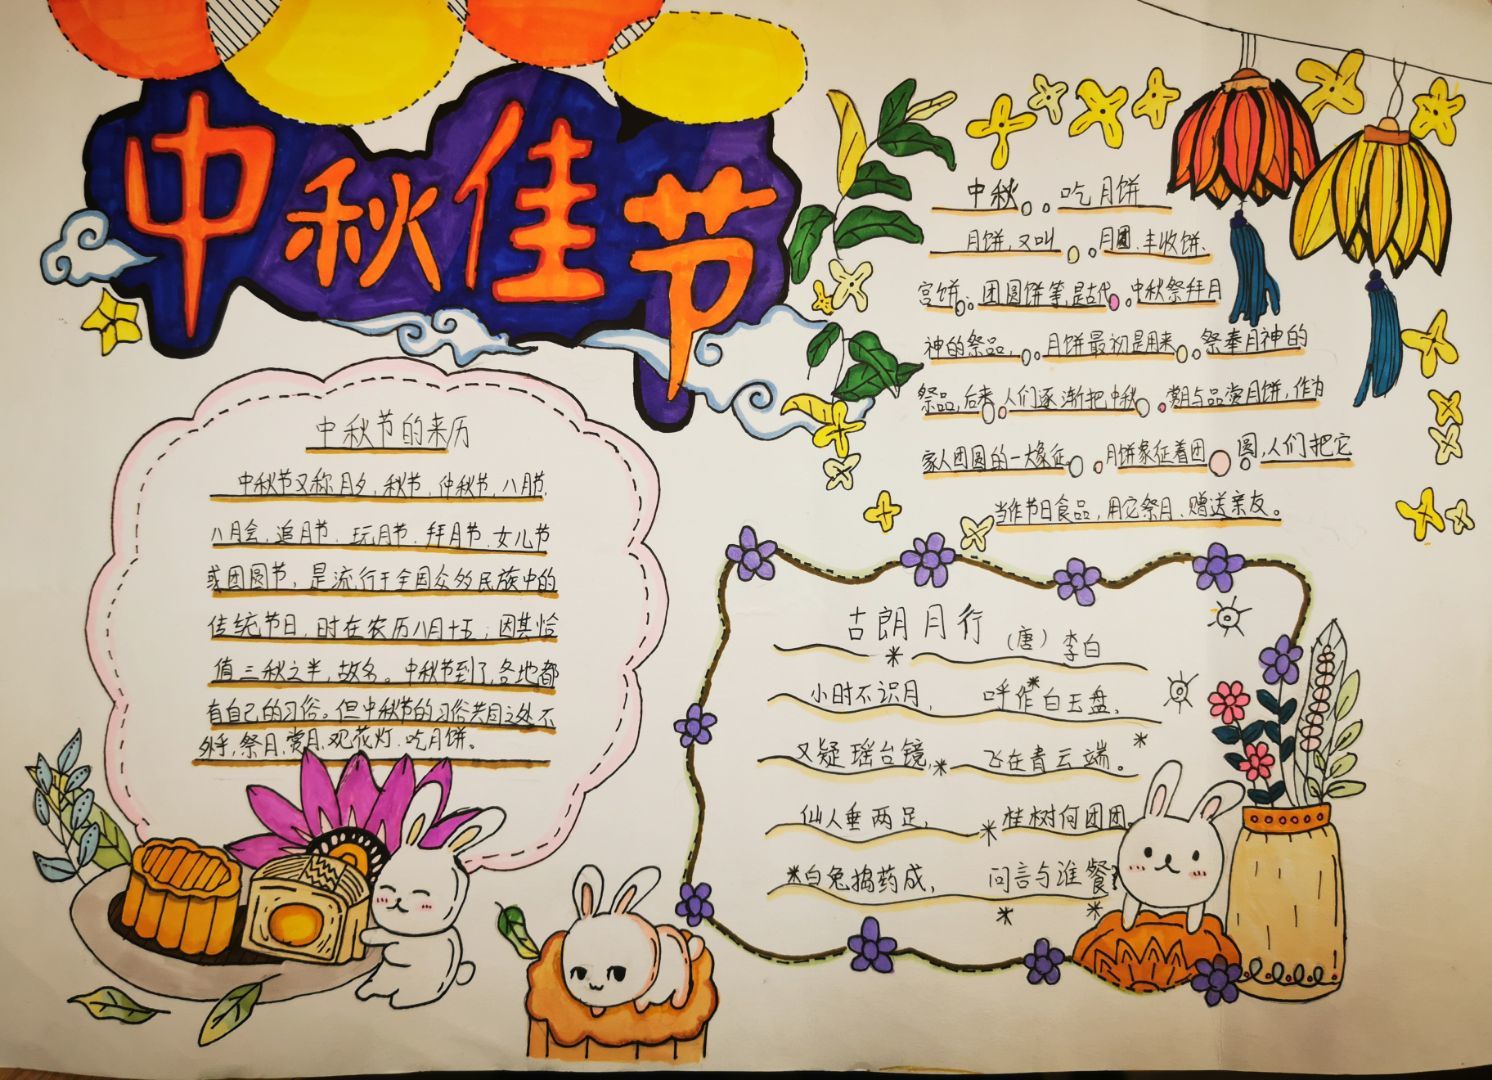 中秋佳节
中秋节的来历
中秋节又称月夕、秋节、仲秋节、八月节、
八月会、追月节、玩月节、拜月节、女儿节
或团圆节，是流行于全国众多民族中的
传统节日，时在农历八月十五；因其恰
值三秋之半，故名。中秋节到了，各地都
有自己的习俗。但中秋节的习俗共同之处不
外乎，祭月、赏月、观花灯、吃月饼。
中秋 吃月饼
月饼，又叫 月团、丰收饼、
宫饼 团圆饼等，是古代 中秋祭拜月
神的祭品， 月饼最初是用来 祭奉月神的
祭品，后来 人们逐渐把中秋 赏月与品尝月饼，作为
家人团圆的一大象征 月饼象征着团 圆，人们把它
当作节日食品，用它祭月、赠送亲友。
古朗月行
（唐）李白
小时不识月， 呼作白玉盘、
又疑瑶台镜， 飞在青云端。
仙人垂两足， 桂树何团团。
白兔捣药成， 问言与谁餐？